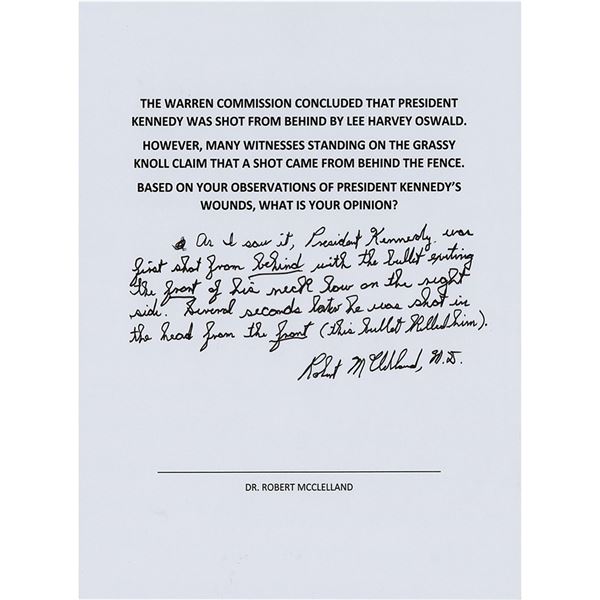 THE WARREN COMMISSION CONCLUDED THAT PRESIDENT
KENNEDY WAS SHOT FROM BEHIND BY LEE HARVEY OSWALD.
HOWEVER, MANY WITNESSES STANDING ON THE GRASSY
KNOLL CLAIM THAT A SHOT CAME FROM BEHIND THE FENCE.
BASED ON YOUR OBSERVATIONS OF PRESIDENT KENNEDY'S
WOUNDS, WHAT IS YOUR OPINION?
As I saw it, President Kennedy was
first shot from behind with the bullet exiting
the front of his neck low on the right
side. Several seconds later he was shot in
the head from the front (this bullet killed him).
Robert McClelland, M.D.
DR. ROBERT MCCLELLAND